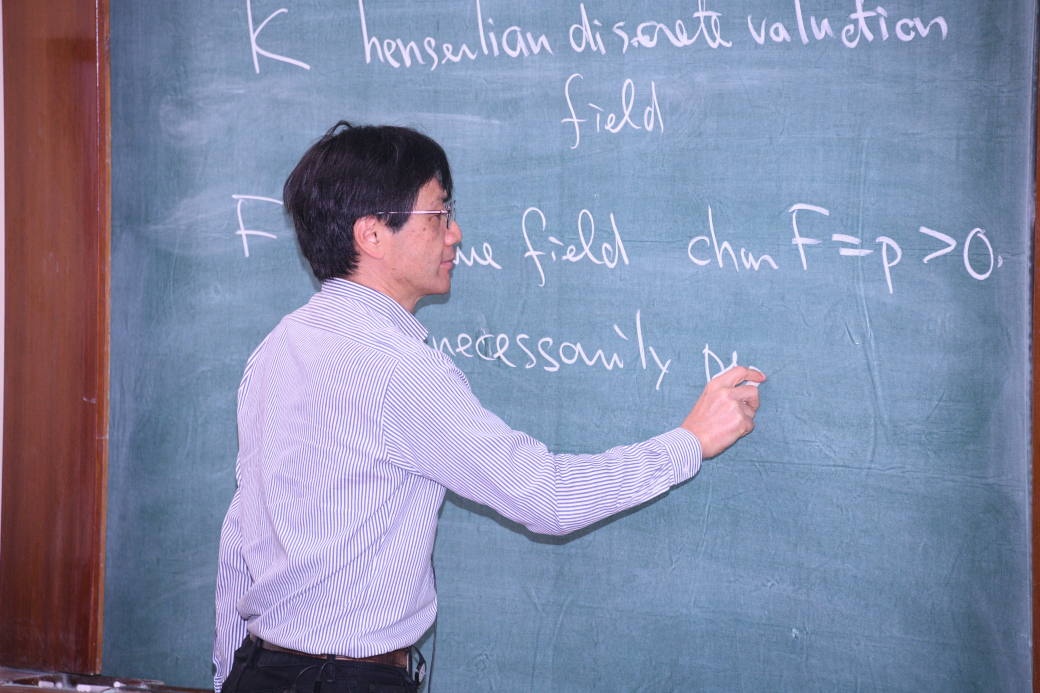 K henselian discrete valuation
field
F field char F = p > 0.
necessarily